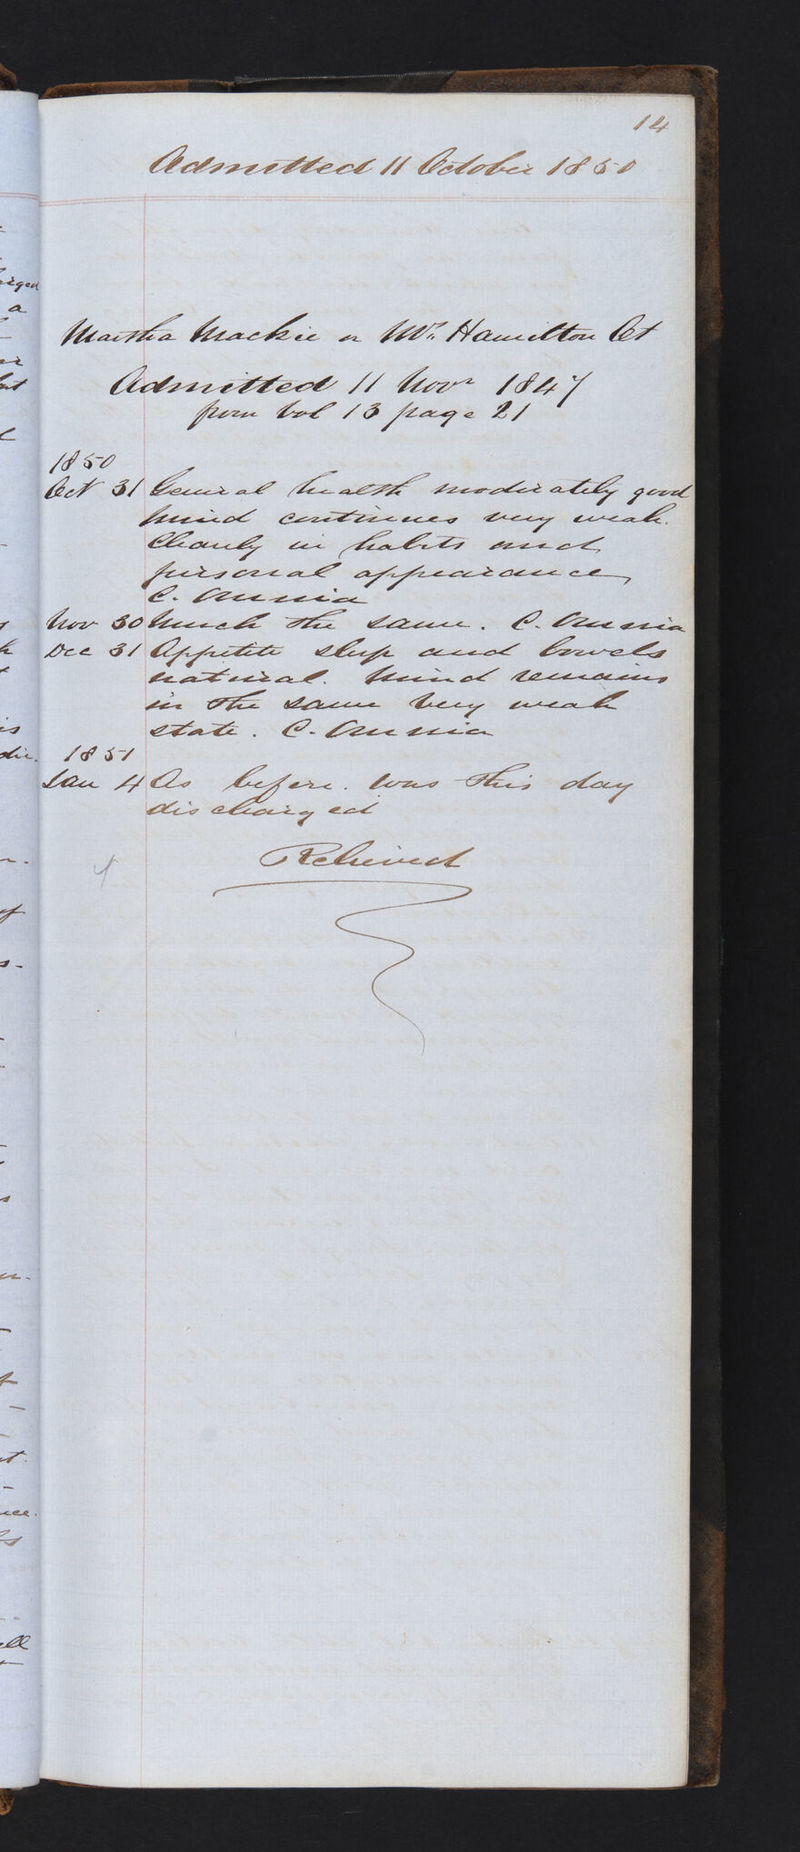 14
Admitted 11 October 1850
Martha Mackie or Hamilton Ct
Admitted 11 Novr 1847
from Vol 13 page 21
1850
Oct 31 General health moderately good
mind continues very weak.
Cleanly in habits and
personal appearance,
C. Omnia
Nov 30 Much the same. C. Omnia
Dec 31 Appetite sleep and bowels
natural. Mind remains
in the same very weak
state. C. Omnia
1851
Jan 4 As before. Was this day
discharged
Relieved